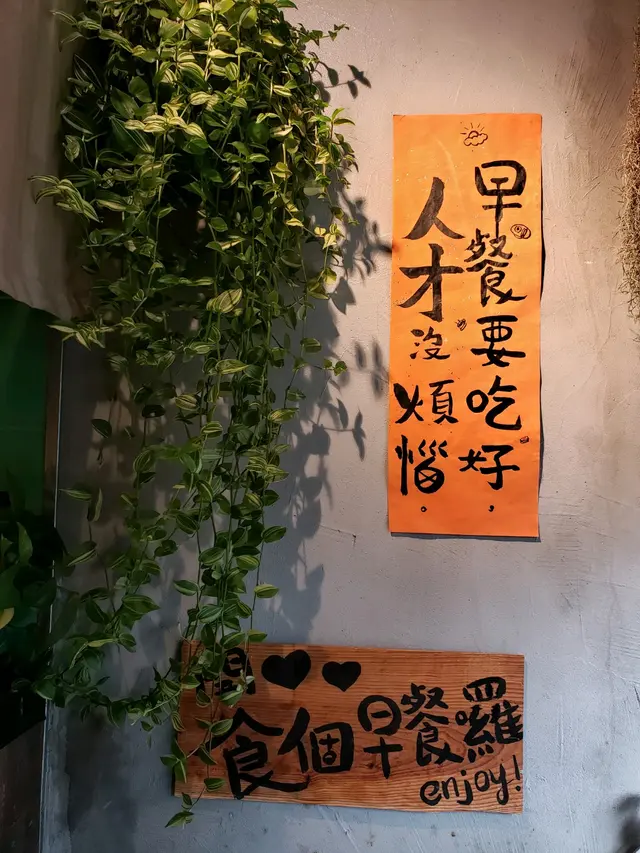 早餐要吃好，
人才沒煩惱。
食個早餐囉
enjoy!